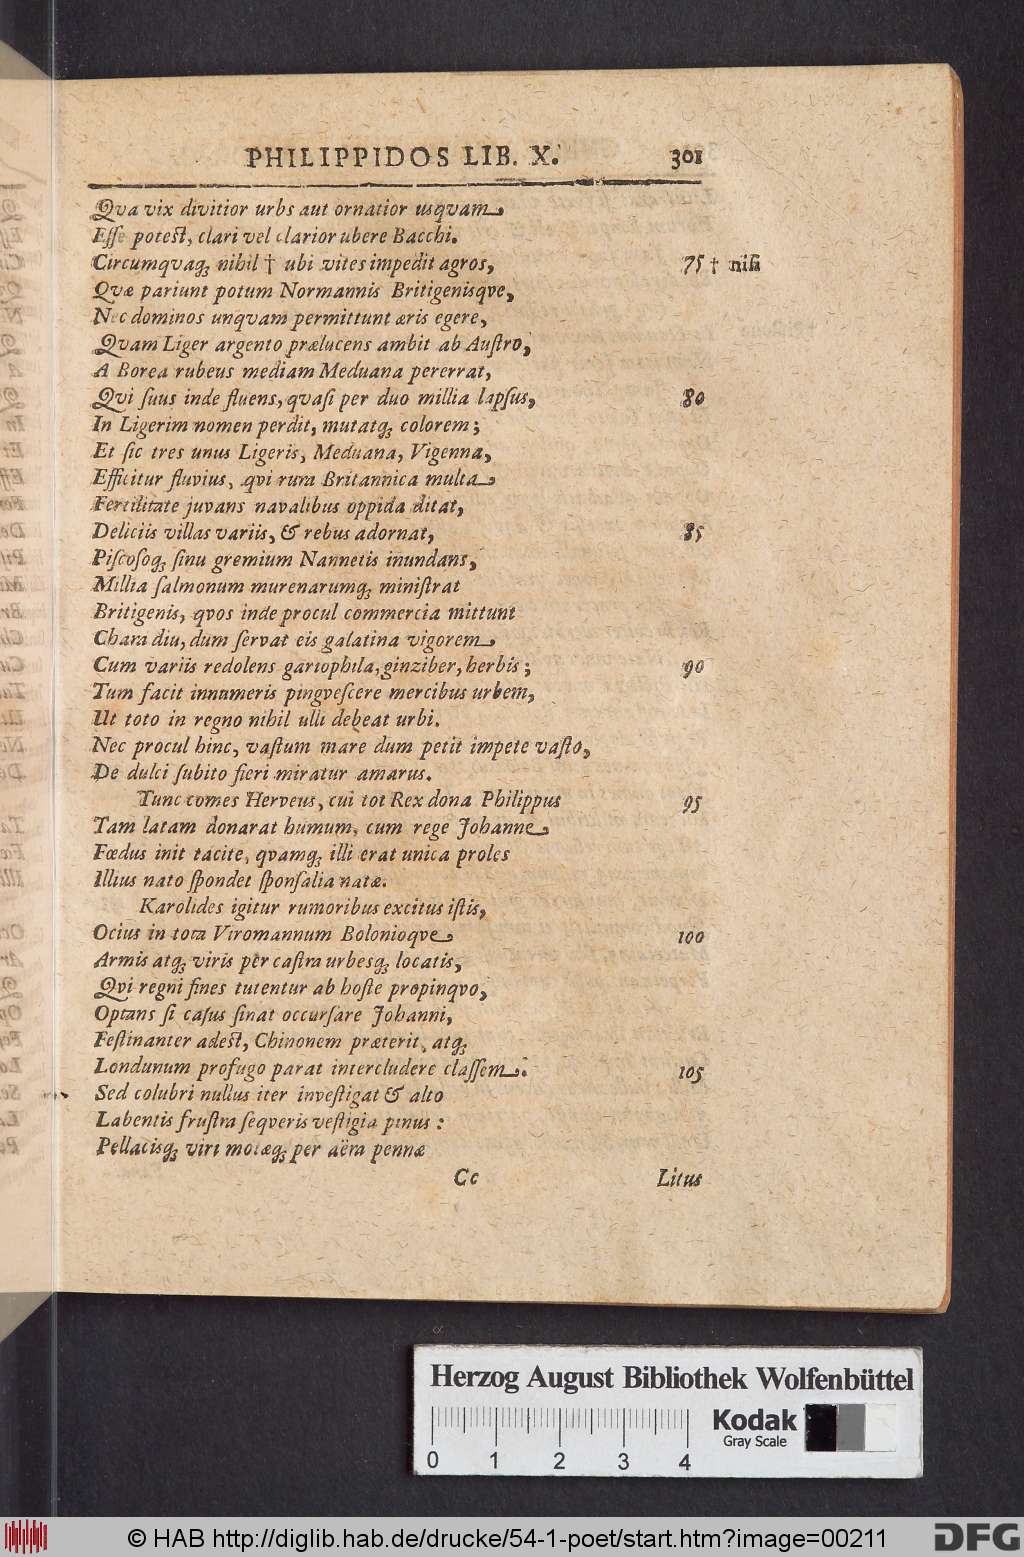 PHILIPPIDOS LIB. X. 301
Qva vix divitior urbs aut ornatior usqvam
Esse potest, clari vel clarior ubere Bacchi.
Circumqvaq; nihil † ubi vites impedit agros, 75 † nisi
Qvæ pariunt potum Normannis Britigenisqve,
Nec dominos unqvam permittunt æris egere,
Qvam Liger argento prælucens ambit ab Austro,
A Borea rubeus mediam Meduana pererrat,
Qvi suus inde fluens, qvasi per duo millia lapsus, 80
In Ligerim nomen perdit, mutatq; colorem;
Et sic tres unus Ligeris, Meduana, Vigenna,
Efficitur fluvius, qvi rura Britannica multa
Fertilitate juvans navalibus oppida ditat,
Deliciis villas variis, & rebus adornat, 85
Piscosoq; sinu gremium Nannetis inundans,
Millia salmonum murenarumq; ministrat
Britigenis, qvos inde procul commercia mittunt
Chara diu, dum servat eis galatina vigorem
Cum variis redolens gariophila, ginziber, herbis; 90
Tum facit innumeris pingvescere mercibus urbem,
Ut toto in regno nihil ulli debeat urbi.
Nec procul hinc, vastum mare dum petit impete vasto,
De dulci subito fieri miratur amarus.
Tunc comes Herveus, cui tot Rex dona Philippus 95
Tam latam donarat humum, cum rege Johanne
Fœdus init tacite, qvamq; illi erat unica proles
Illius nato spondet sponsalia natæ.
Karolides igitur rumoribus excitus istis,
Ocius in tota Viromannum Bolonioqve 100
Armis atq; viris per castra urbesq; locatis,
Qvi regni fines tutentur ab hoste propinqvo,
Optans si casus sinat occursare Johanni,
Festinanter adest, Chinonem præterit, atq;
Londunum profugo parat intercludere classem. 105
Sed colubri nullus iter investigat & alto
Labentis frustra seqveris vestigia pinus:
Pellacisq; viri motæq; per aëra pennæ
Cc Litus
Herzog August Bibliothek Wolfenbüttel
Kodak
Gray Scale
0 1 2 3 4
© HAB http://diglib.hab.de/drucke/54-1-poet/start.htm?image=00211
DFG